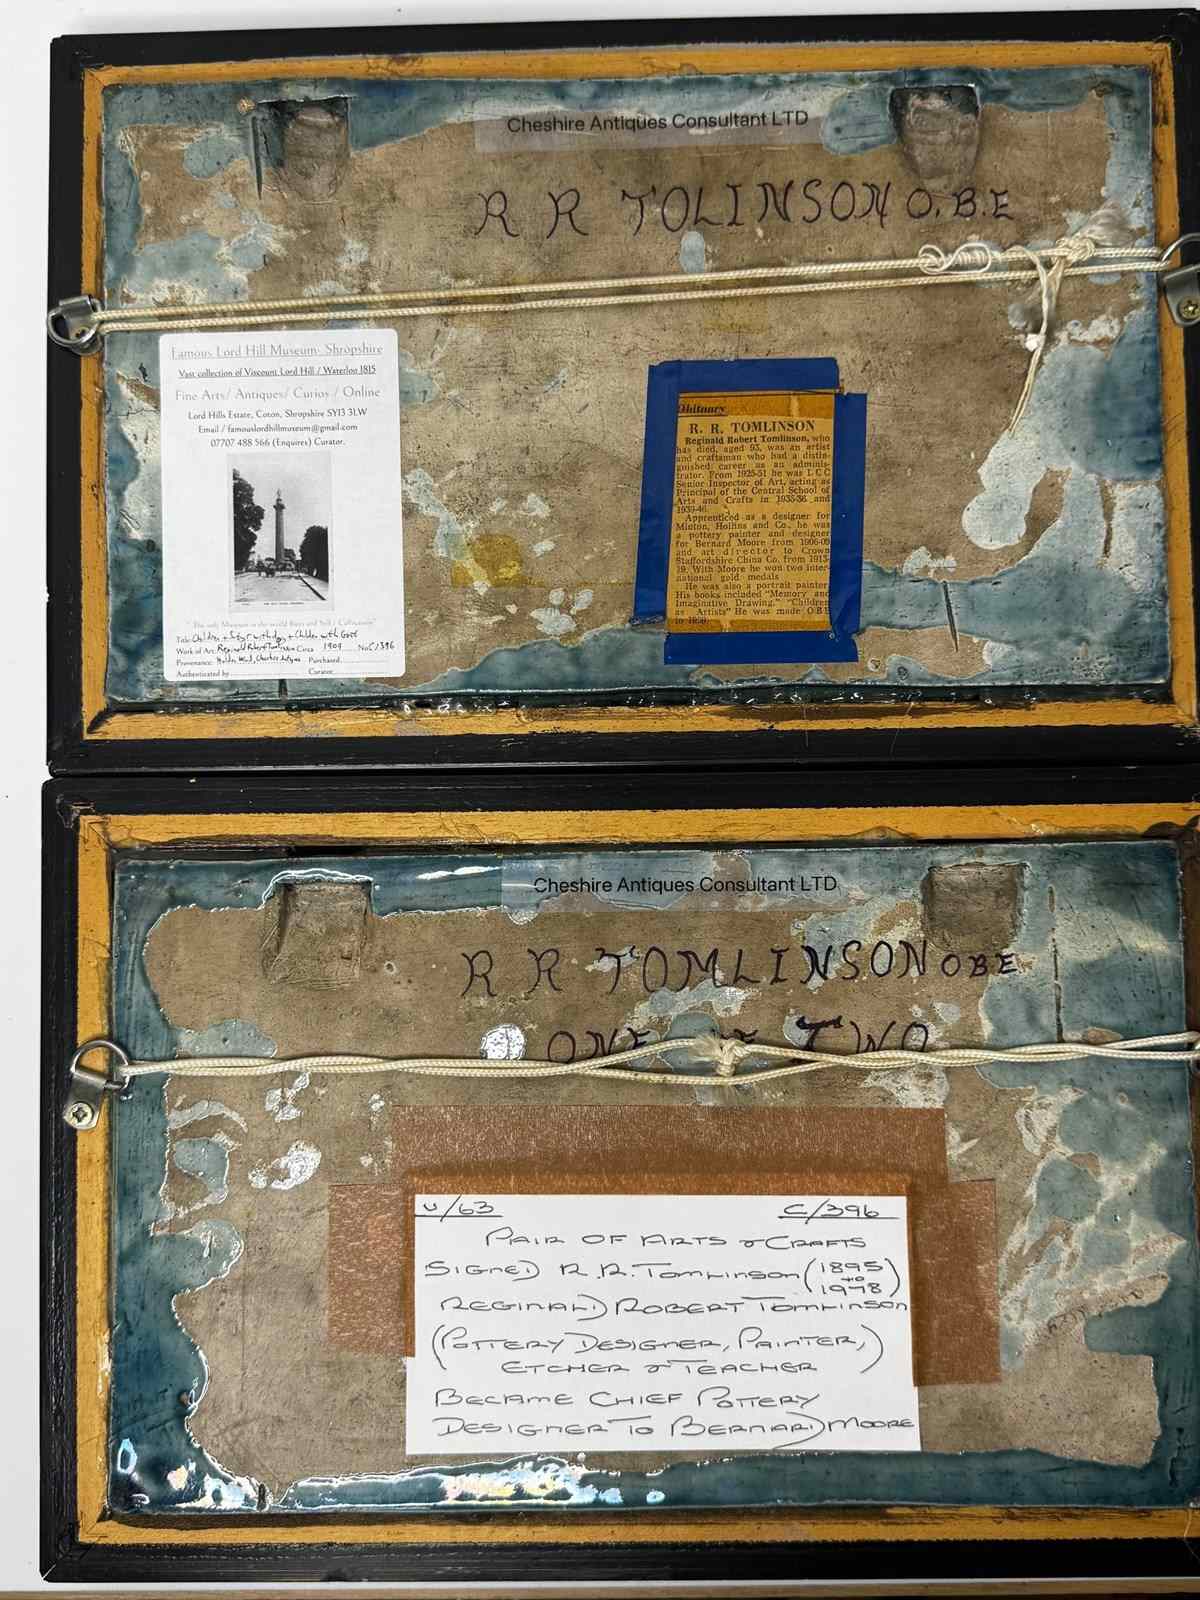 Cheshire Antiques Consultant LTD
R R TOLINSON O.B.E
Famous Lord Hill Museum- Shropshire
Vast collection of Viscount Lord Hill / Waterloo 1815
Fine Arts/ Antiques/ Curios / Online
Lord Hills Estate, Coton, Shropshire SY13 3LW
Email / famouslordhillmuseum@gmail.com
07707 488 566 (Enquires) Curator.
"The only Museum in the world Buys and Sell / Collections"
Title: Children + with dog + Children with Goat
Work of Art: Reginald Robert Tomlinson Circa 1909 No C/396
Provenance: Cheshire Purchased
Authenticated by Curator
Obituary
R. R. TOMLINSON
Reginald Robert Tomlinson, who
has died, aged 93, was an artist
and craftsman who had a distin-
guished career as an adminis-
trator. From 1925-51 he was LCC
Senior Inspector of Art, acting as
Principal of the Central School of
Arts and Crafts in 1935-36 and
1939-46.
Apprenticed as a designer for
Minton, Hollins and Co., he was
a pottery painter and designer
for Bernard Moore from 1906-09
and art director to Crown
Staffordshire China Co. from 1913-
19. With Moore he won two inter-
national gold medals
He was also a portrait painter
His books included "Memory and
Imaginative Drawing," "Children
as Artists" He was made OBE
in
Cheshire Antiques Consultant LTD
R R TOMLINSON OBE
ONE TWO
U/63 C/396
PAIR OF ARTS & CRAFTS
SIGNED R.R. TOMLINSON (1895
TO
1978)
REGINALD ROBERT TOMLINSON
(POTTERY DESIGNER, PAINTER,)
ETCHER & TEACHER
BECAME CHIEF POTTERY
DESIGNER TO BERNARD MOORE